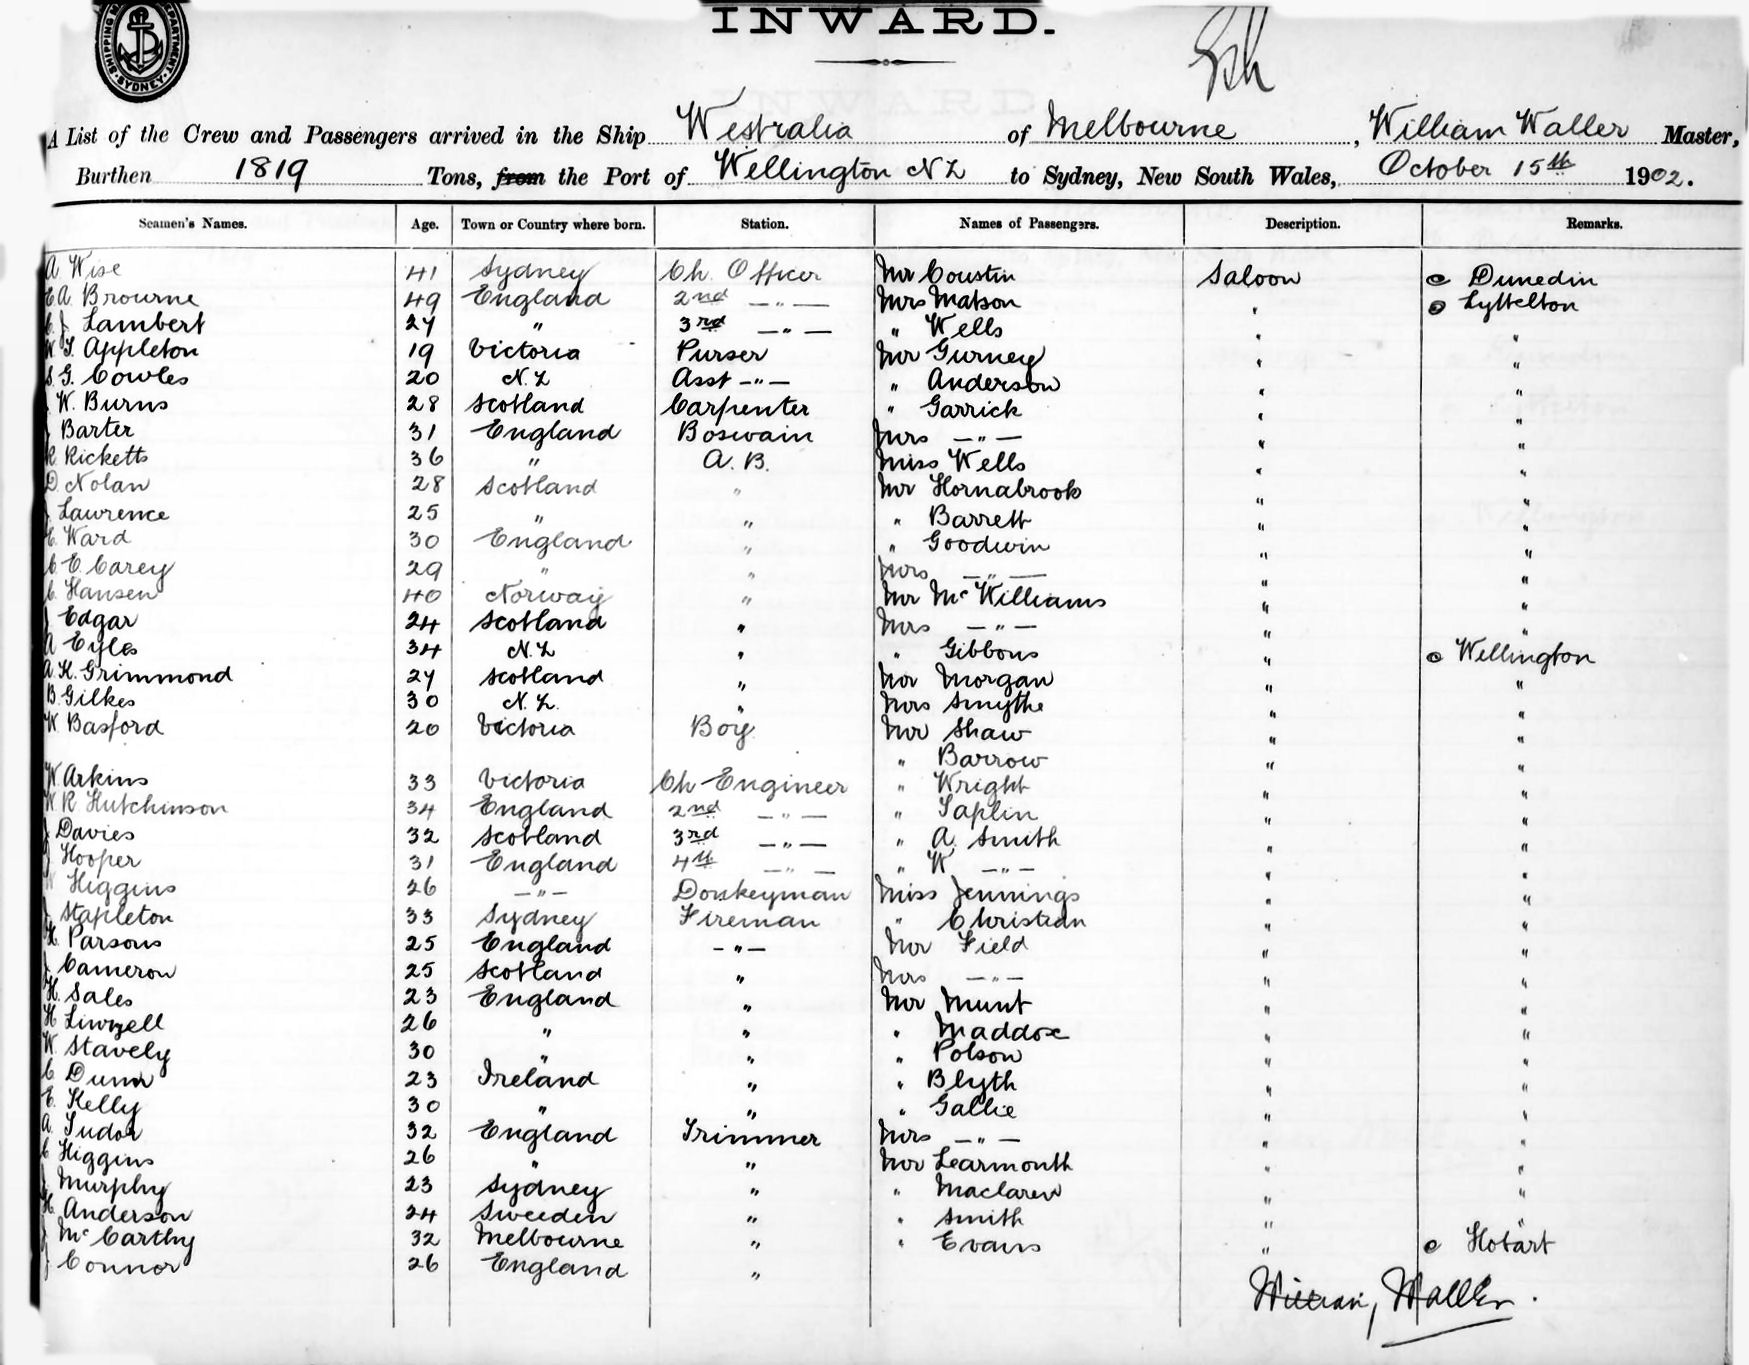 INWARD.
SHIPPING MASTER'S DEPARTMENT. SYDNEY
A List of the Crew and Passengers arrived in the Ship Westralia of Melbourne, William Waller Master,
Burthen 1819 Tons, from the Port of Wellington N Z to Sydney, New South Wales, October 15th 1902.
Seamen's Names. Age. Town or Country where born. Station. Names of Passengers. Description. Remarks.
A Wise 41 Sydney Ch. Officer Mr Coustin Saloon e Dunedin
E A. Browne 49 England 2nd —"— Mrs Matson " e Lyttelton
C. J. Lambert 27 " 3rd —"— " Wells " "
W. T. Appleton 19 Victoria Purser Mr Gurney " "
S. G. Cowles 20 N. Z Asst —"— " Anderson " "
J W. Burns 28 Scotland Carpenter " Garrick " "
J Barter 31 England Boswain Mrs —"— " "
R. Ricketts 36 " A. B. Miss Wells " "
D. Nolan 28 Scotland " Mr Hornabrook " "
J Lawrence 25 " " " Barrett " "
E. Ward 30 England " " Goodwin " "
C. E. Carey 29 " " Mrs —"— " "
C. Hansen 40 Norway " Mr McWilliams " "
J Edgar 24 Scotland " Mrs —"— " "
A Eyles 34 N. Z " " Gibbons " e Wellington
A. K. Grimmond 27 Scotland " Mr Morgan " "
B. Gilkes 30 N. Z. " Mrs Smythe " "
W. Basford 20 Victoria Boy Mr Shaw " "
" Barrow " "
W. Arkins 33 Victoria Ch Engineer " Wright " "
W R Hutchinson 34 England 2nd —"— " Taplin " "
J Davies 32 Scotland 3rd —"— " A. Smith " "
J Hooper 31 England 4th —"— " W —"— " "
W Higgins 26 —"— Donkeyman Miss Jennings " "
J Stapleton 33 Sydney Fireman " Christian " "
H. Parsons 25 England —"— Mr Field " "
J Cameron 25 Scotland " Mrs —"— " "
H. Sales 23 England " Mr Munt " "
H 26 " " " Maddox " "
W. Stavely 30 " " " Polson " "
C Dunn 23 Ireland " " Blyth " "
E. Kelly 30 " " " Gallie " "
A. Tudor 32 England Trimmer Mrs —"— " "
C Higgins 26 " " Mr Learmonth " "
J Murphy 23 Sydney " " Maclaren " "
H. Anderson 24 Sweeden " " Smith " "
J McCarthy 32 Melbourne " " Evans " e Hobart
J Connor 26 England "
William Waller.